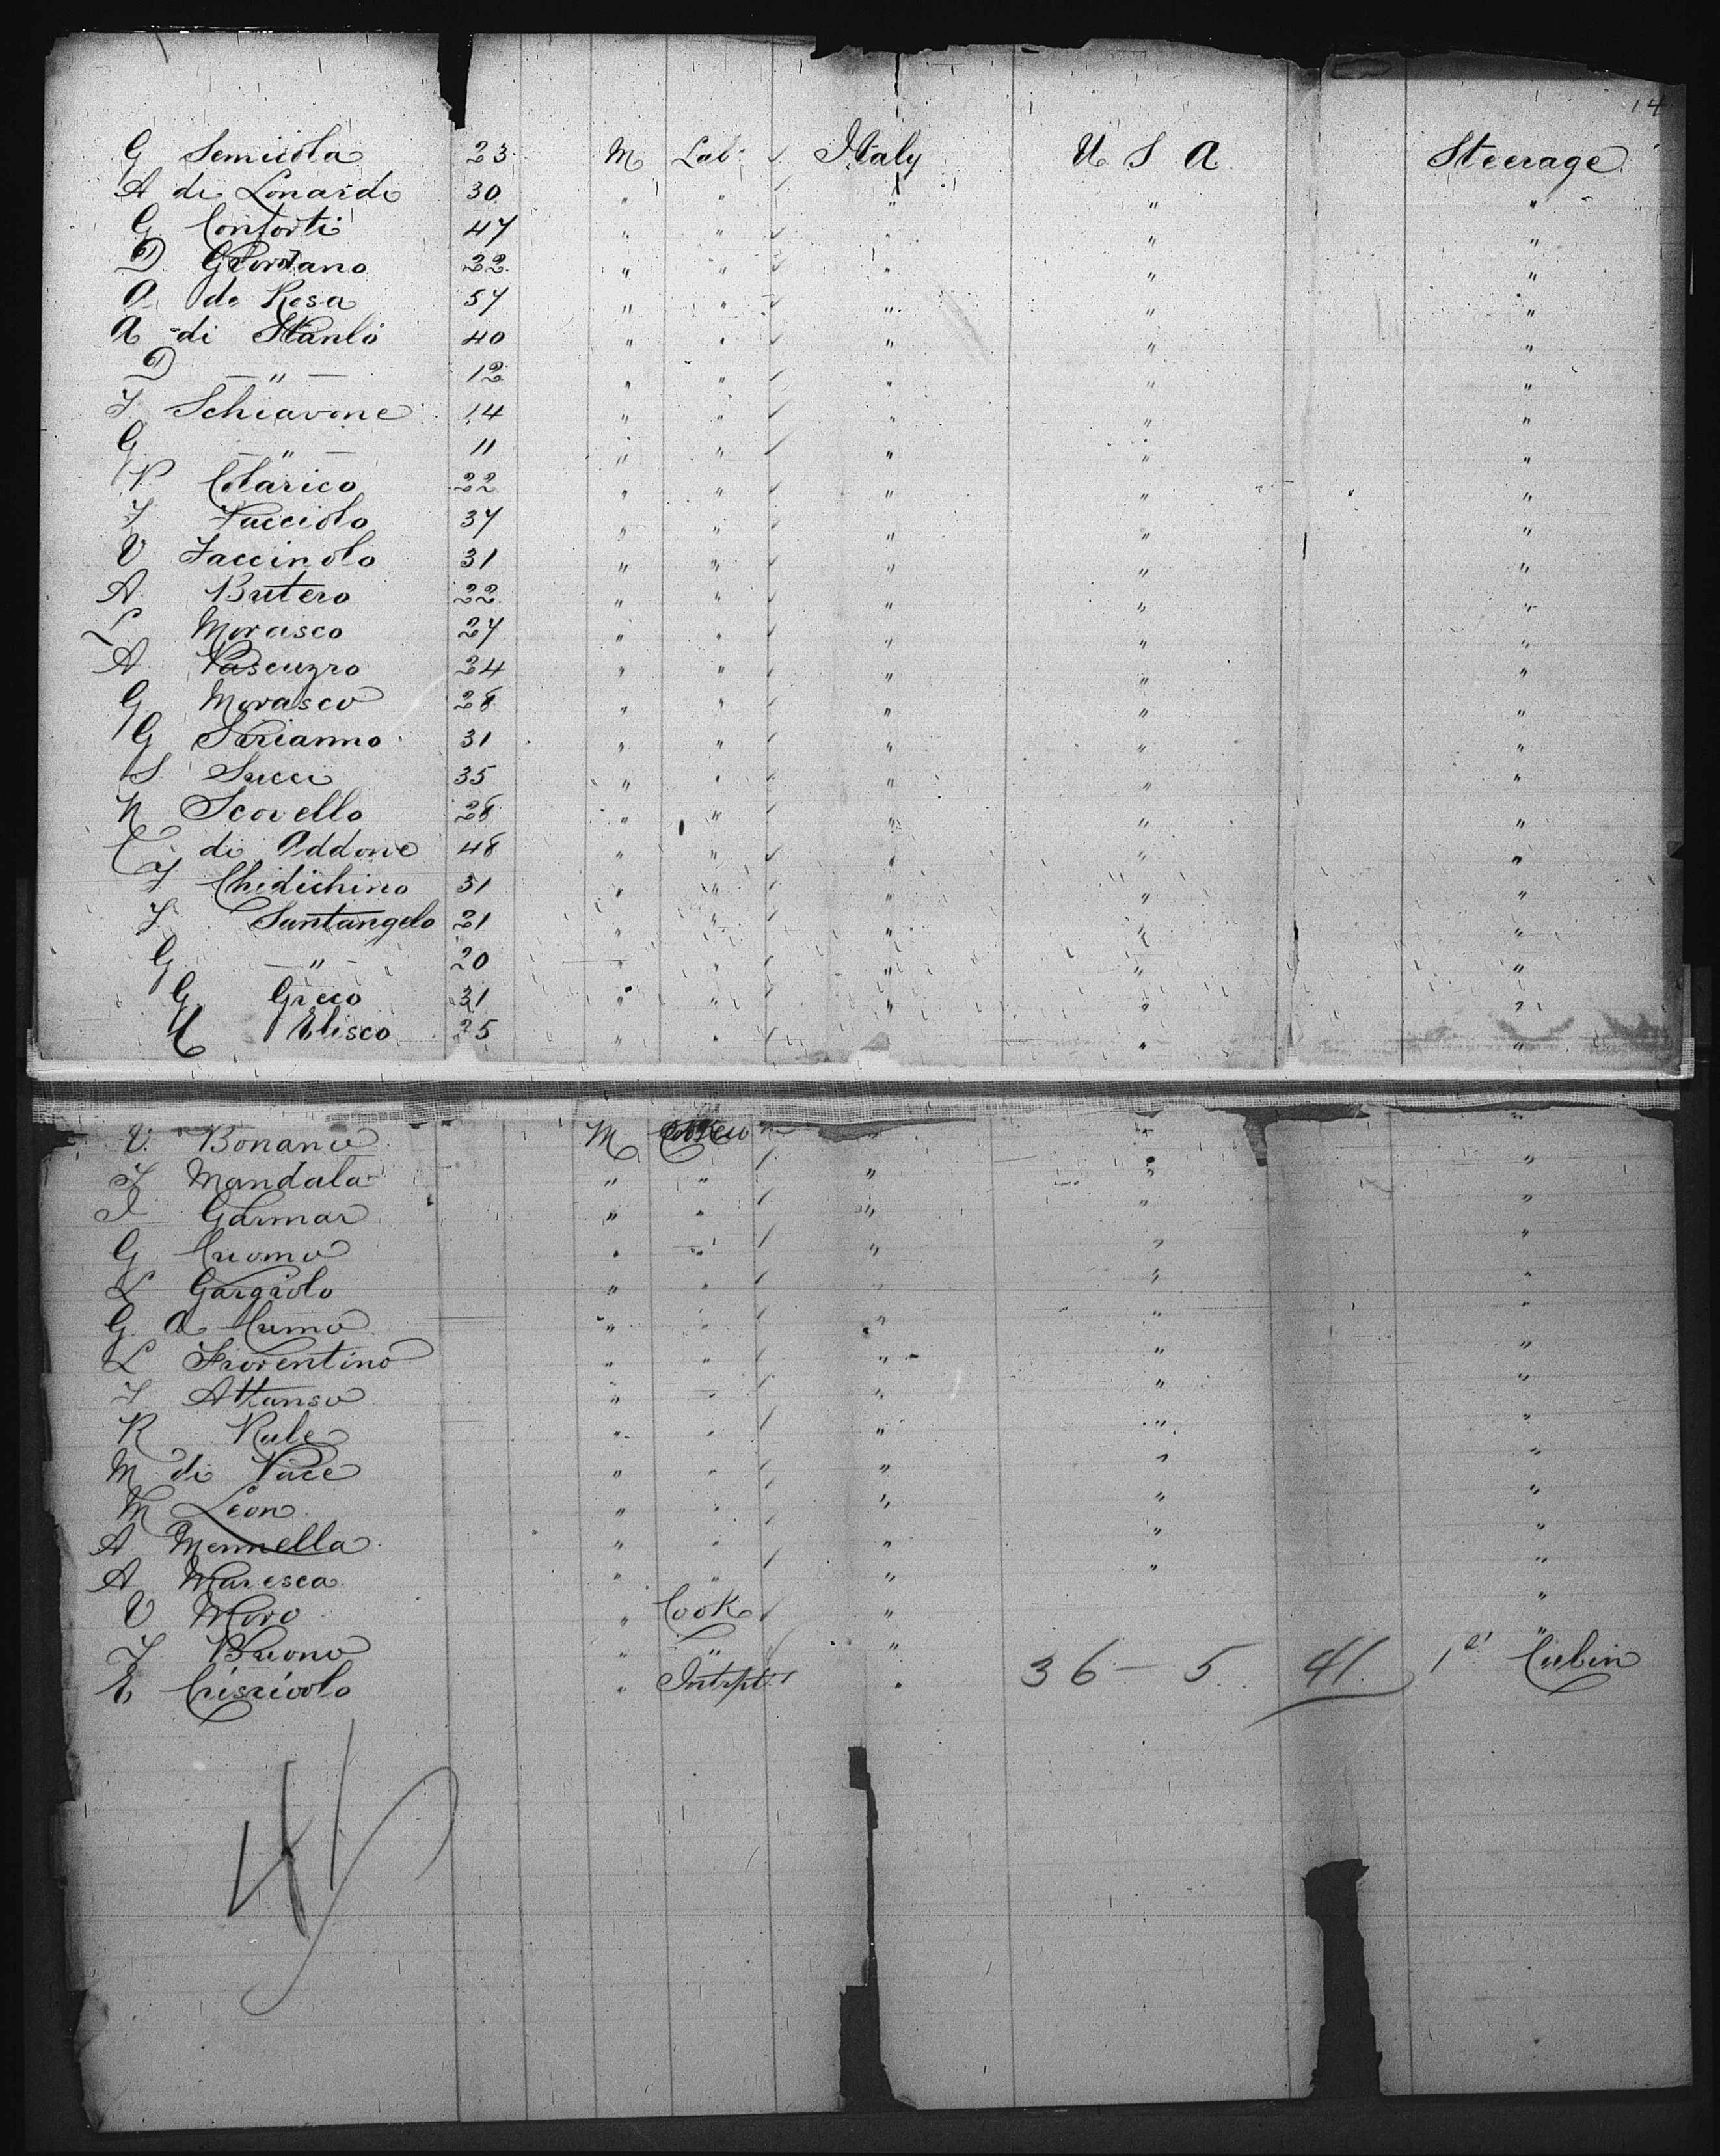 14
G Semicola 23 M Lab. ✓ Italy U S A Steerage
A di Lonardo 30 " " ✓ " " "
G Conforti 47 " " ✓ " " "
D Giordano 22 " " ✓ " " "
A de Rosa 57 " " ✓ " " "
A di Stanlo 40 " " ✓ " " "
D — " — 12 " " ✓ " " "
F Schiavone 14 " " ✓ " " "
G — " — 11 " " ✓ " " "
P Colarico 22 " " ✓ " " "
F Vacciolo 37 " " ✓ " " "
V Faccinolo 31 " " ✓ " " "
A Butero 22 " " ✓ " " "
L Morasco 27 " " ✓ " " "
A Pascuzro 24 " " ✓ " " "
G Morasco 28 " " ✓ " " "
G Sarianno 31 " " ✓ " " "
S Succi 35 " " ✓ " " "
N Scovello 28 " " ✓ " " "
C di Addone 48 " " ✓ " " "
F Chidichino 31 " " ✓ " " "
F Santangelo 21 " " ✓ " " "
G — " — 20 " " ✓ " " "
G Greco 31 " " ✓ " " "
Elisco 25 " " ✓ " "
V. Bonano M " "
F Mandala " " ✓ " " "
I Garmar " " ✓ " " "
G Cuomo " " ✓ " " "
L Gargiolo " " ✓ " " "
G. A Cumo " " ✓ " " "
L Fiorentino " " ✓ " " "
F Attanso " " ✓ " " "
R Rule " " ✓ " " "
M di Pace " " ✓ " " "
M Leon " " ✓ " " "
A Mennella " " ✓ " " "
A Maresca " " ✓ " " "
V Moro " Cook ✓ " "
F Buono " " ✓ " "
E Criscivolo " Intrpt. ✓ " 36 — 5 41 1st Cabin